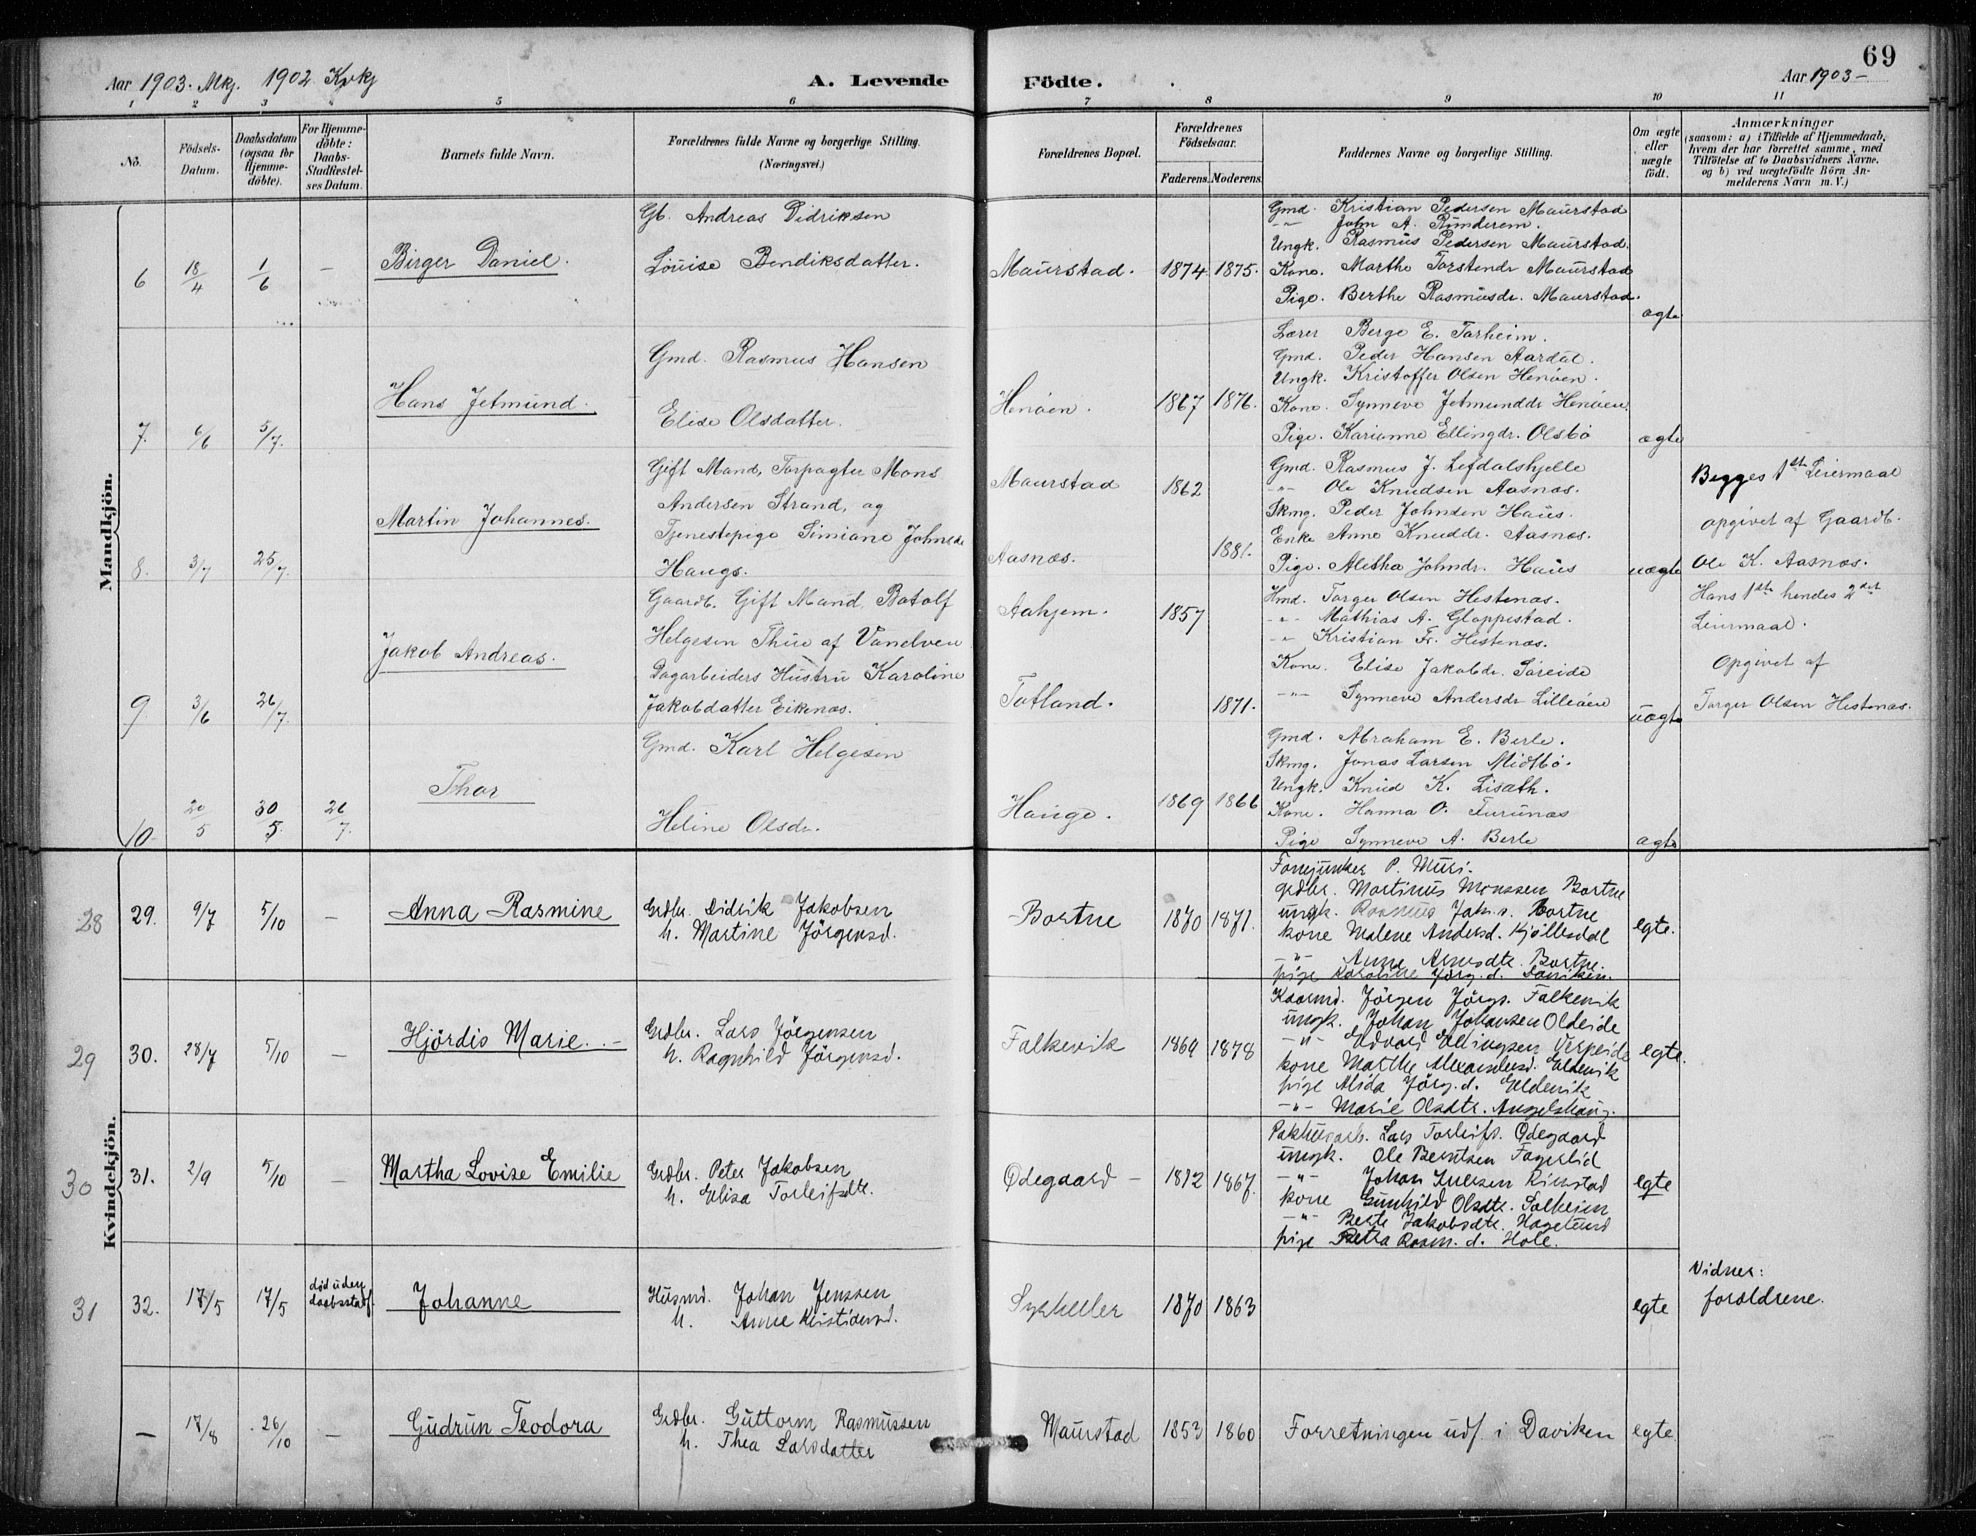 69
Aar 1903. Mkj. 1902 Kvkj
A. Levende Födte.
Aar 1903 –
1 2 3 5 6 7 8 9 10 11
No.
Födsels-Datum.
Daabsdatum (ogsaa for Hjemmedöbte).
For Hjemmedöbte: Daabs-Stadfæstelses Datum.
Barnets fulde Navn.
Forældrenes fulde Navne og borgerlige Stilling. (Næringsvei.)
Forældrenes Bopæl.
Forældrenes Födselsaar.
Faderens. Moderens.
Faddernes Navne og borgerlige Stilling.
Om ægte eller uægte födt.
Anmærkninger
(saasom: a) i Tilfælde af Hjemmedaab, hvem der har forrettet samme, med Tilföielse af to Daabsvidners Navne. og b) ved uægtefödte Börn Anmelderens Navn m. V.)
Mandkjön.
6 18/4 1/6 –
Birger Daniel.
Gb. Andreas Didriksen
Lóuise Bendiksdatter.
Maurstad. 1874 1875.
Gmd. Kristian Pedersen Maurstad
-"- John A. Runderem.
Ungk. Rasmus Pedersen Maurstad.
Kone. Marthe Torstendr Maurstad
Pige. Berthe Rasmusdr. Maurstad.
ægte
7. 6/6 5/7.
Hans Jetmund.
Gmd. Rasmus Hansen
Elise Olsdatter.
Henöen. 1867 1876.
Lærer Berge E. Torheim.
Gmd. Peder Hansen Aardal.
Ungk. Kristoffer Olsen Henöen.
Kone. Synneve Jetmunddr Henöen.
Pige. Karianne Ellingdr. Olsbö
ægte
8. 3/7 25/7.
Martin Johannes.
Gift Mand, Forpagter Mons
Andersen Strand, og
Tjenestepige Simiane Johnsdr
Haugs.
Maurstad 1862
Aasnæs. 1881.
Gmd. Rasmus J. Lefdalshjelle
-"- Ole Knudsen Aasnæs.
Skmg. Peder Johnsen Haus.
Enke Anne Knuddr. Aasnæs.
Pige. Alitha Johndr. Haus
uægte
Begges 1ste Leiermaal
opgivet af Gaardb.
Ole K. Aasnæs.
9. 3/6 26/7.
Jakob Andreas.
Gaardb. Gift Mand, Botolf
Helgesen Thue af Vanelven
Dagarbeiders Hustru Karoline
Jakobdatter Eikenæs.
Aahjem. 1857
Totland. 1871.
Hmd. Torger Olsen Hestenæs.
-"- Mathias A. Gloppestad.
-"- Kristian Fr. Hestenæs.
Kone. Elise Jakobdr. Söreide
-"- Synneve Andersdr Lilleöen
uægte
Hans 1ste hendes 2det
Leiermaal.
Opgivet af
Torger Olsen Hestenæs.
10. 20/5 30/5. 26/7.
Thor
Gmd. Karl Helgesen
Heline Olsdr.
Hauge. 1869 1866
Gmd. Abraham E. Berle.
Skmg. Jonas Larsen Midtbö.
Ungk. Knud K. Lisæth.
Kone. Hanna O. Furunæs
Pige Synneve A. Berle
ægte
Kvindekjön.
28 29. 9/7 5/10 –
Anna Rasmine
Grdbr. Didrik Jakobsen
h. Martine Jörgensd.
Bortne 1870 1871.
Fanejunker P. Muri.
grdbr. Martinus Monssen Bortne
ungk. Rasmus Jak.s. Bortne
kone Malene Andersd. Kjöllesdal
-"- Anne Arnesdtr. Bortne
pige Karoline Jörg.d. Daviken.
egte.
29 30. 28/7 5/10 –
Hjördis Marie.
Grdbr. Lars Jörgensen
h. Ragnhild Jörgensd.
Falkevik 1869 1878
Kaarmd. Jörgen Jörgs. Falkevik
ungk. Johan Johansen Oldeide
-"- Edvard Ellingsen Verpeide
kone Marthe Alexandersd. Eldevik
pige Alida Jörg.d. Eldevik
-"- Marie Olsdtr. Angelshaug.
egte.
30 31. 2/9 5/10 –
Martha Lovise Emilie
Grdbr. Peter Jakobsen
h. Elisa Torleifsdtr.
Ødegaard – 1872 1867.
Pakhusarb. Lars Torleifs. Ødegaard
ungk. Ole Berntsen Fagerlid
-"- Johan Iversen Rimstad
kone Gunhild Olsdtr. Solheim
-"- Berte Jakobsdtr. Hagelund
pige Petra Rasm.d. Hole.
egte
31 32. 17/5 17/5
död uden daabsstadf.
Johanne
Husmd. Johan Jenssen
h. Anne Kristidensd.
1870 1863
egte
Vidner:
forældrene.
– 17/8 26/10 –
Gudrun Teodora
Grdbr. Guttorm Rasmussen
h. Thea Larsdatter
Maurstad 1853 1860
Forretningen udf. i Daviken
egte